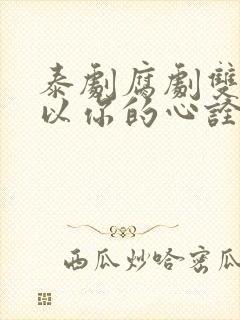 泰劇腐劇雙
以你的心詮
西瓜炒哈密瓜